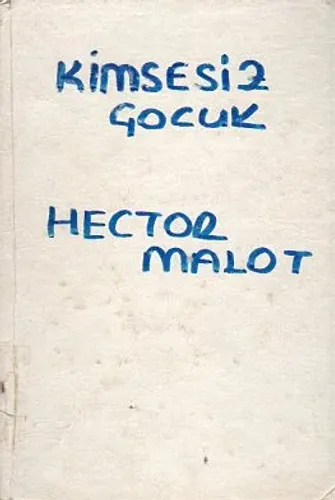 KiMSESiZ
ÇOCUK
HECTOR
MALOT